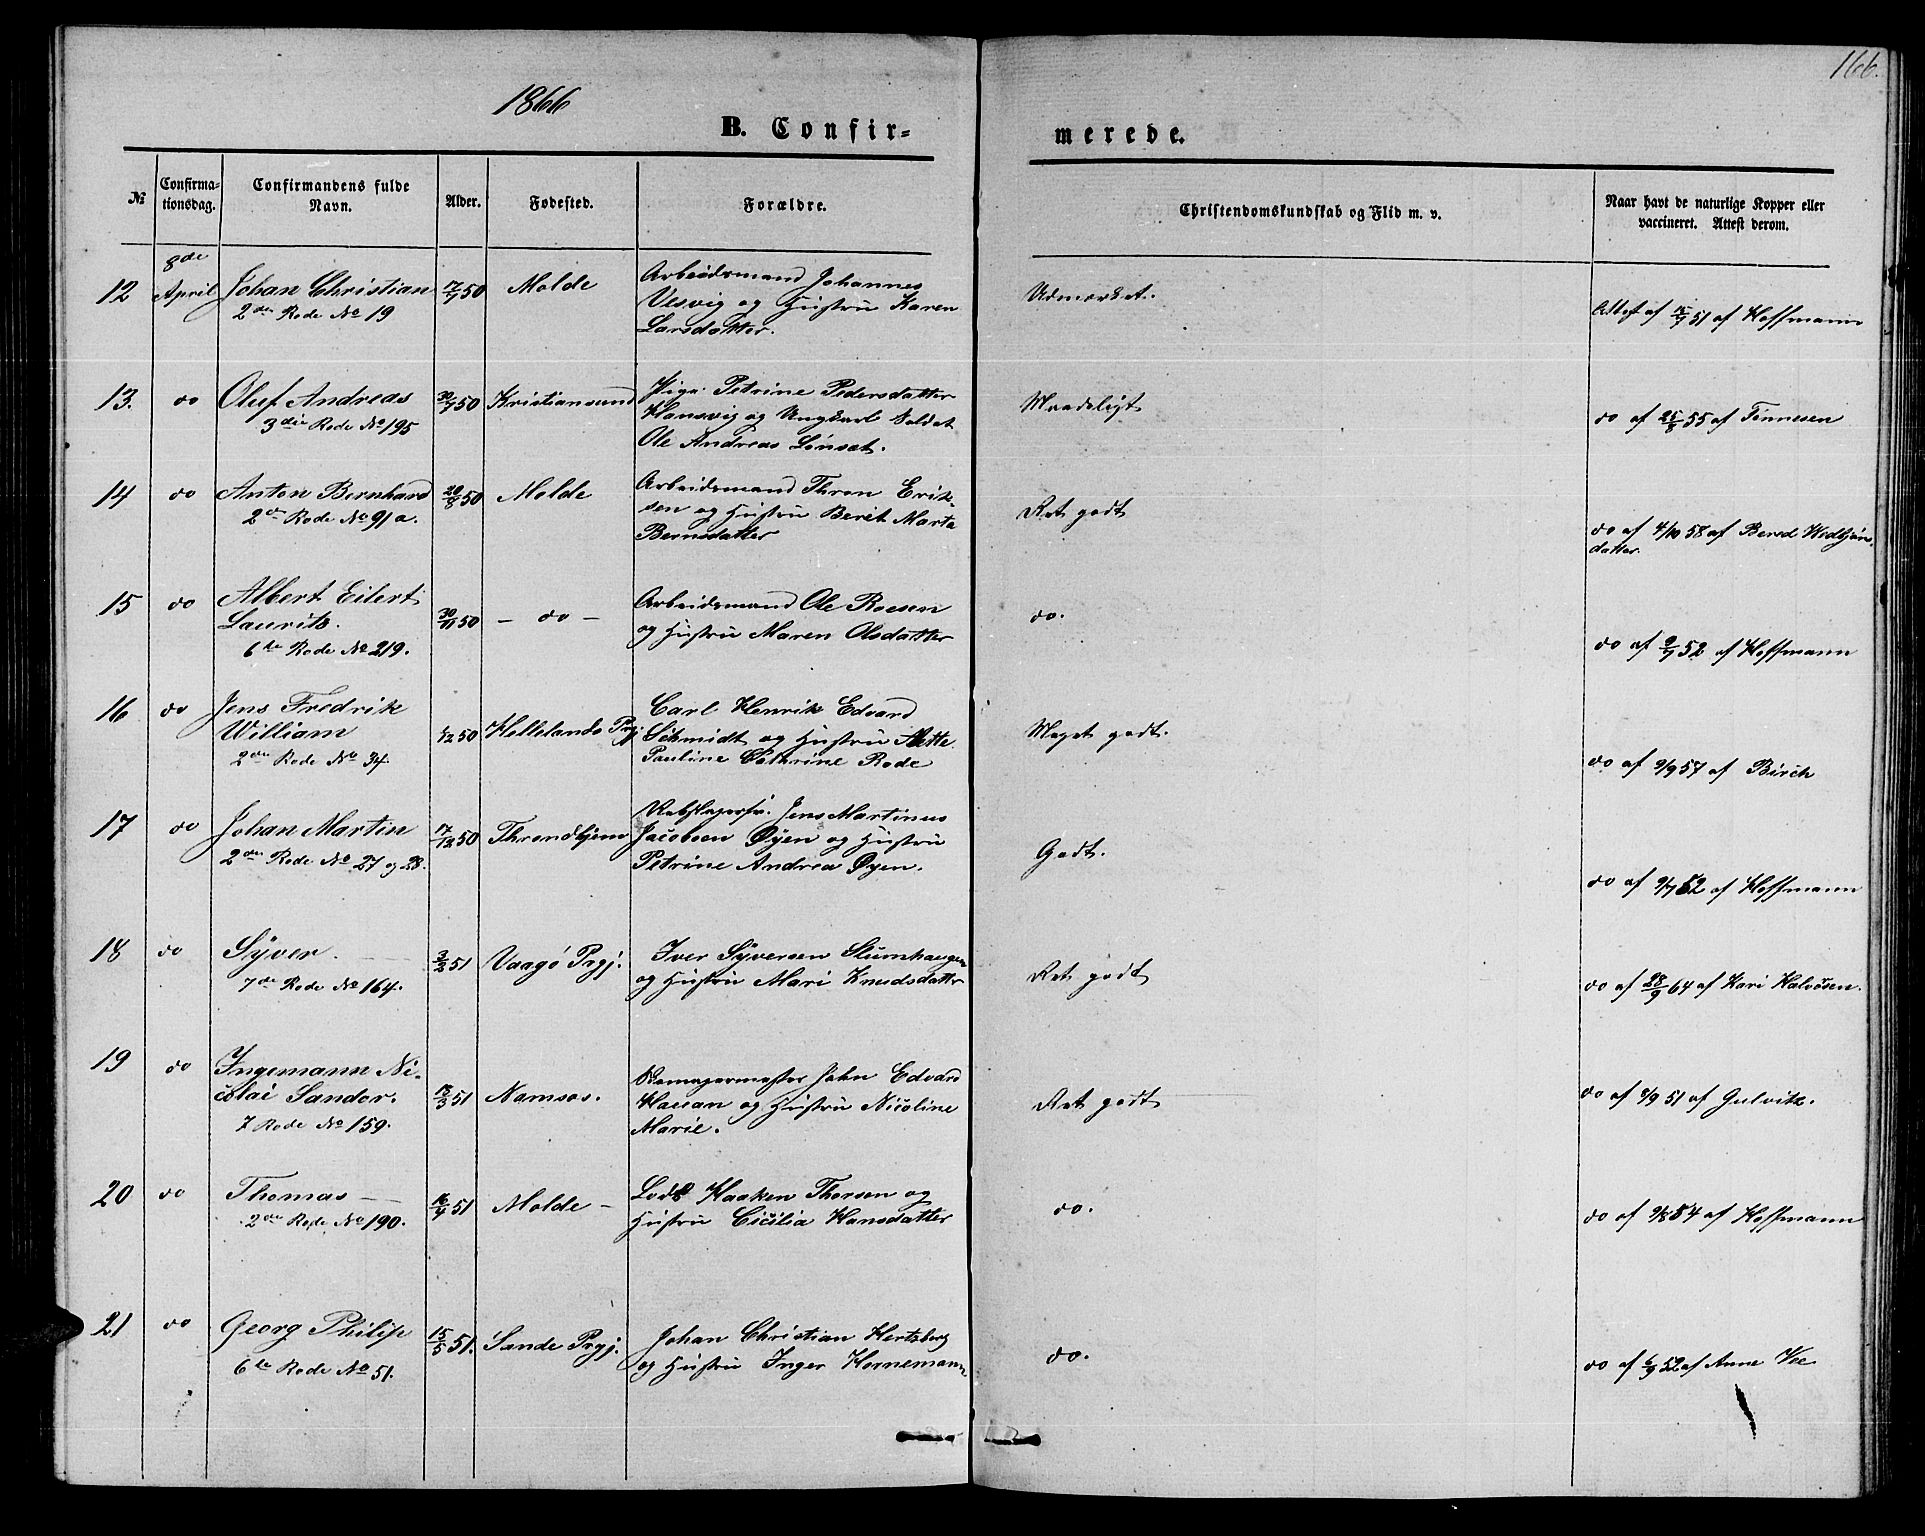 166.
1866
B. Confir=
merede.
№
Confirma-
tionsdag.
Confirmandens fulde
Navn.
Alder.
Fødested.
Forældre.
Christendomskundskab og Flid m. v.
Naar havt de naturlige Kopper eller
vaccineret. Attest derom.
8de
12 April Johan Christian 17/7 50 Molde Arbeidsmand Johannes Udmærket.
2den Rode No 19 Vesvig og Hustru Karen Attest af 15/7 51 af Hoffmann
Larsdatter.
13. do Oluf Andreas 30/7 50 Kristiansund Pige Petrine Pedersdatter Maadeligt
3die Rode No 195 Hansvig og Ungkarl Soldat do af 25/8 55 af Tønnesen
Ole Andreas Lønset.
14 do Anton Bernhard 20/8 50 Molde Arbeidsmand Thron Erik-
2den Rode No 91 a. sen og Hustru Berit Marta Ret godt
Berntsdatter do af 4/10 58 af Bered
datter.
15 do Albert Eilert 30/11 50 - do - Arbeidsmand Ole Roesen do.
Laurits. og Hustru Maren Olsdatter
6te Rode No 219. do af 9/7 52 af Hoffmann
16 do Jens Fredrik Carl Henrik Edvard
William 50 Hellelands Prgj Schmidt og Hustru Mette Meget godt.
2den Rode No 34. Pauline Cathrine Rode do af 9/9 57 af Birch
17 do Johan Martin 17/12 50 Throndhjem Rebslagersv. Jens Martinus
2den Rode No 27 og 28. Jacobsen Øyen og Hustru Godt.
Petrine Andrea Øyen. do af 9/7 52 af Hoffmann
18 do Syver. 3/2 51 Vaagø Prgj. Iver Syversen Slumhaugen
7de Rode No 164. og Hustru Mari Knudsdatter Ret godt do af 28/9 64 af Kari Halvosen.
19 do Ingemann Ni-
colai Sandor. 13/3 51 Namsos. John Edvard
7 Rode No 159. Hauan og Hustru Nicoline Ret godt do af 51 af Gulvik.
Marie.
20 do Thomas 16/4 51 Molde - Lods Haaken Thorsen og do.
2den Rode No 190. Hustru Cicilia Hansdatter do af 9/8 54 af Hoffmann
21 do Georg Philip 15/5 51. Sande Prgj. Johan Christian Hertzberg do.
6te Rode No 51. og Hustru Inger Hornemann do af 6/9 52 af Anne Vee